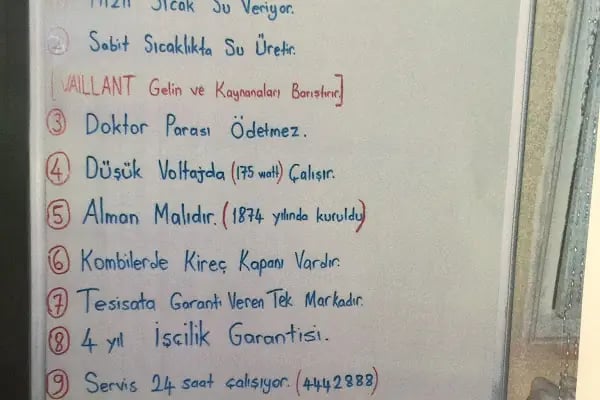 Hızlı Sıcak Su Veriyor.
② Sabit Sıcaklıkta Su Üretir.
[VAILLANT Gelin ve Kaynanaları Barıştırır.]
③ Doktor Parası Ödetmez.
④ Düşük Voltajda (175 watt) Çalışır.
⑤ Alman Malıdır. (1874 yılında kuruldu)
⑥ Kombilerde Kireç Kapanı Vardır.
⑦ Tesisata Garanti Veren Tek Markadır.
⑧ 4 yıl İşçilik Garantisi.
⑨ Servis 24 saat çalışıyor. (4442888)